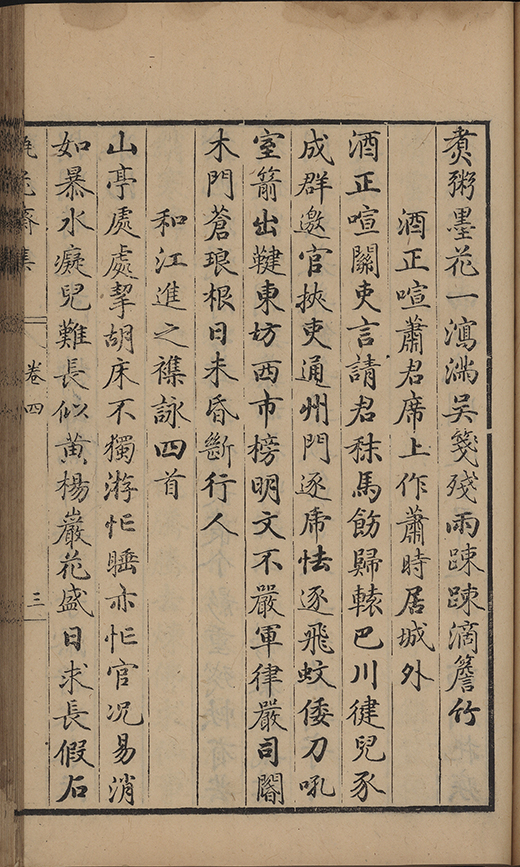 煑粥墨花一瀉滿吳箋殘雨踈踈滴簷竹
酒正喧蕭君席上作蕭時居城外
酒正喧關吏言請君秣馬飭歸轅巴川徤兒豕
成群邀官挾吏通州門逐虎怯逐飛蚊倭刀吼
室箭出鞬東坊西市榜明文不嚴軍律嚴司閽
木門蒼琅根日未昏斷行人
和江進之襍詠四首
山亭處處挈胡床不獨游忙睡亦忙官况易消
如暴水癡兒難長似黄楊巖花盛日求長假石
齋集
卷四
三